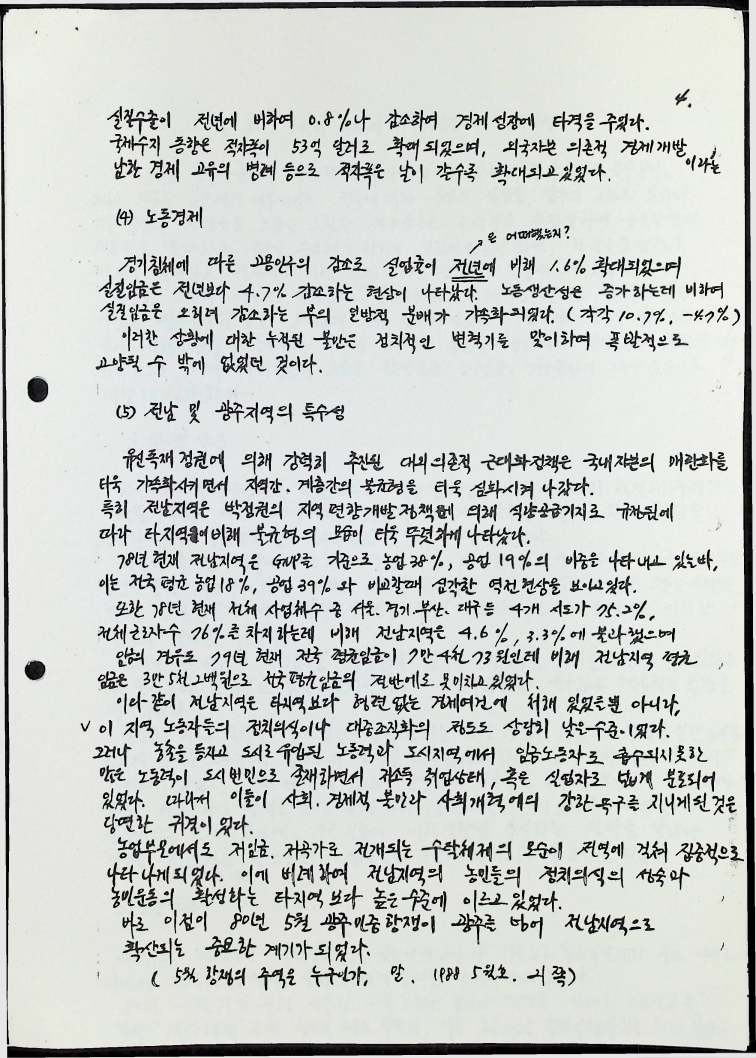 4.
실질수출이 전년에 비하여 0.8%나 감소하여 경제성장에 타격을 주었다.
국제수지 동향은 적자폭이 53억 달러로 확대되었으며, 외국자본 의존적 경제개발이라는
남한 경제 고유의 병폐 등으로 적자폭은 날이 갈수록 확대되고 있었다.
(4) 노동경제
은 어떠했는지?
경기침체에 따른 고용인구의 감소로 실업률이 전년에 비해 1.6% 확대되었으며
실질임금은 전년보다 4.7% 감소하는 현상이 나타났다. 노동생산성은 증가하는데 비하여
실질임금은 오히려 감소하는 부의 일방적 분배가 가속화되었다. (각각 10.7%, -4.7%)
이러한 상황에 대한 누적된 불만은 정치적인 변혁기를 맞이하여 폭발적으로
고양될 수 밖에 없었던 것이다.
(5) 전남 및 광주지역의 특수성
유신독재정권에 의해 강력히 추진된 대외의존적 근대화정책은 국내자본의 매판화를
더욱 가속화시키면서 지역간. 계층간의 불균형을 더욱 심화시켜 나갔다.
특히 전남지역은 박정권의 지역편향개발정책에 의해 식량공급기지로 규정됨에
따라 타지역에 비해 불균형의 모습이 더욱 뚜렷하게 나타났다.
78년 현재 전남지역은 GNP를 기준으로 농업 38%, 공업 19%의 비중을 나타내고 있는바,
이는 전국 평균 농업 18%, 공업 39%와 비교할때 심각한 역전현상을 보이고 있다.
또한 78년 현재 전체 사업체수 중 서울. 경기. 부산. 대구 등 4개 시도가 75.2%,
전체 근로자수 76%를 차지하는데 비해 전남지역은 4.6%, 3.3%에 불과했으며
임금의 경우도 79년 현재 전국 평균임금이 7만 4천 73원인데 비해 전남지역 평균
임금은 3만 5천 2백원으로 전국평균임금의 절반에도 못미치고 있었다.
이와 같이 전남지역은 타지역보다 형편 없는 경제여건에 처해 있었을뿐 아니라,
∨ 이 지역 노동자들의 정치의식이나 대중조직화의 정도도 상당히 낮은 수준이었다.
그러나 농촌을 등지고 도시로 유입된 노동력과 도시지역에서 임금노동자로 흡수되지 못한
많은 노동력이 도시빈민으로 존재하면서 저소득 취업상태, 혹은 실업자로 넓게 분포되어
있었다. 따라서 이들이 사회. 경제적 불만과 사회개혁에의 강한 욕구를 지니게 된 것은
당연한 귀결이었다.
농업부문에서도 저임금. 저곡가로 전개되는 수탈체제의 모순이 전역에 걸쳐 집중적으로
나타나게 되었다. 이에 비례하여 전남지역의 농민들의 정치의식의 성숙과
농민운동의 활성화는 타지역보다 높은 수준에 이르고 있었다.
바로 이점이 80년 5월 광주민중항쟁이 광주를 넘어 전남지역으로
확산되는 중요한 계기가 되었다.
( 5월 항쟁의 주역은 누구인가, 말. 1988 5월호. 21쪽)